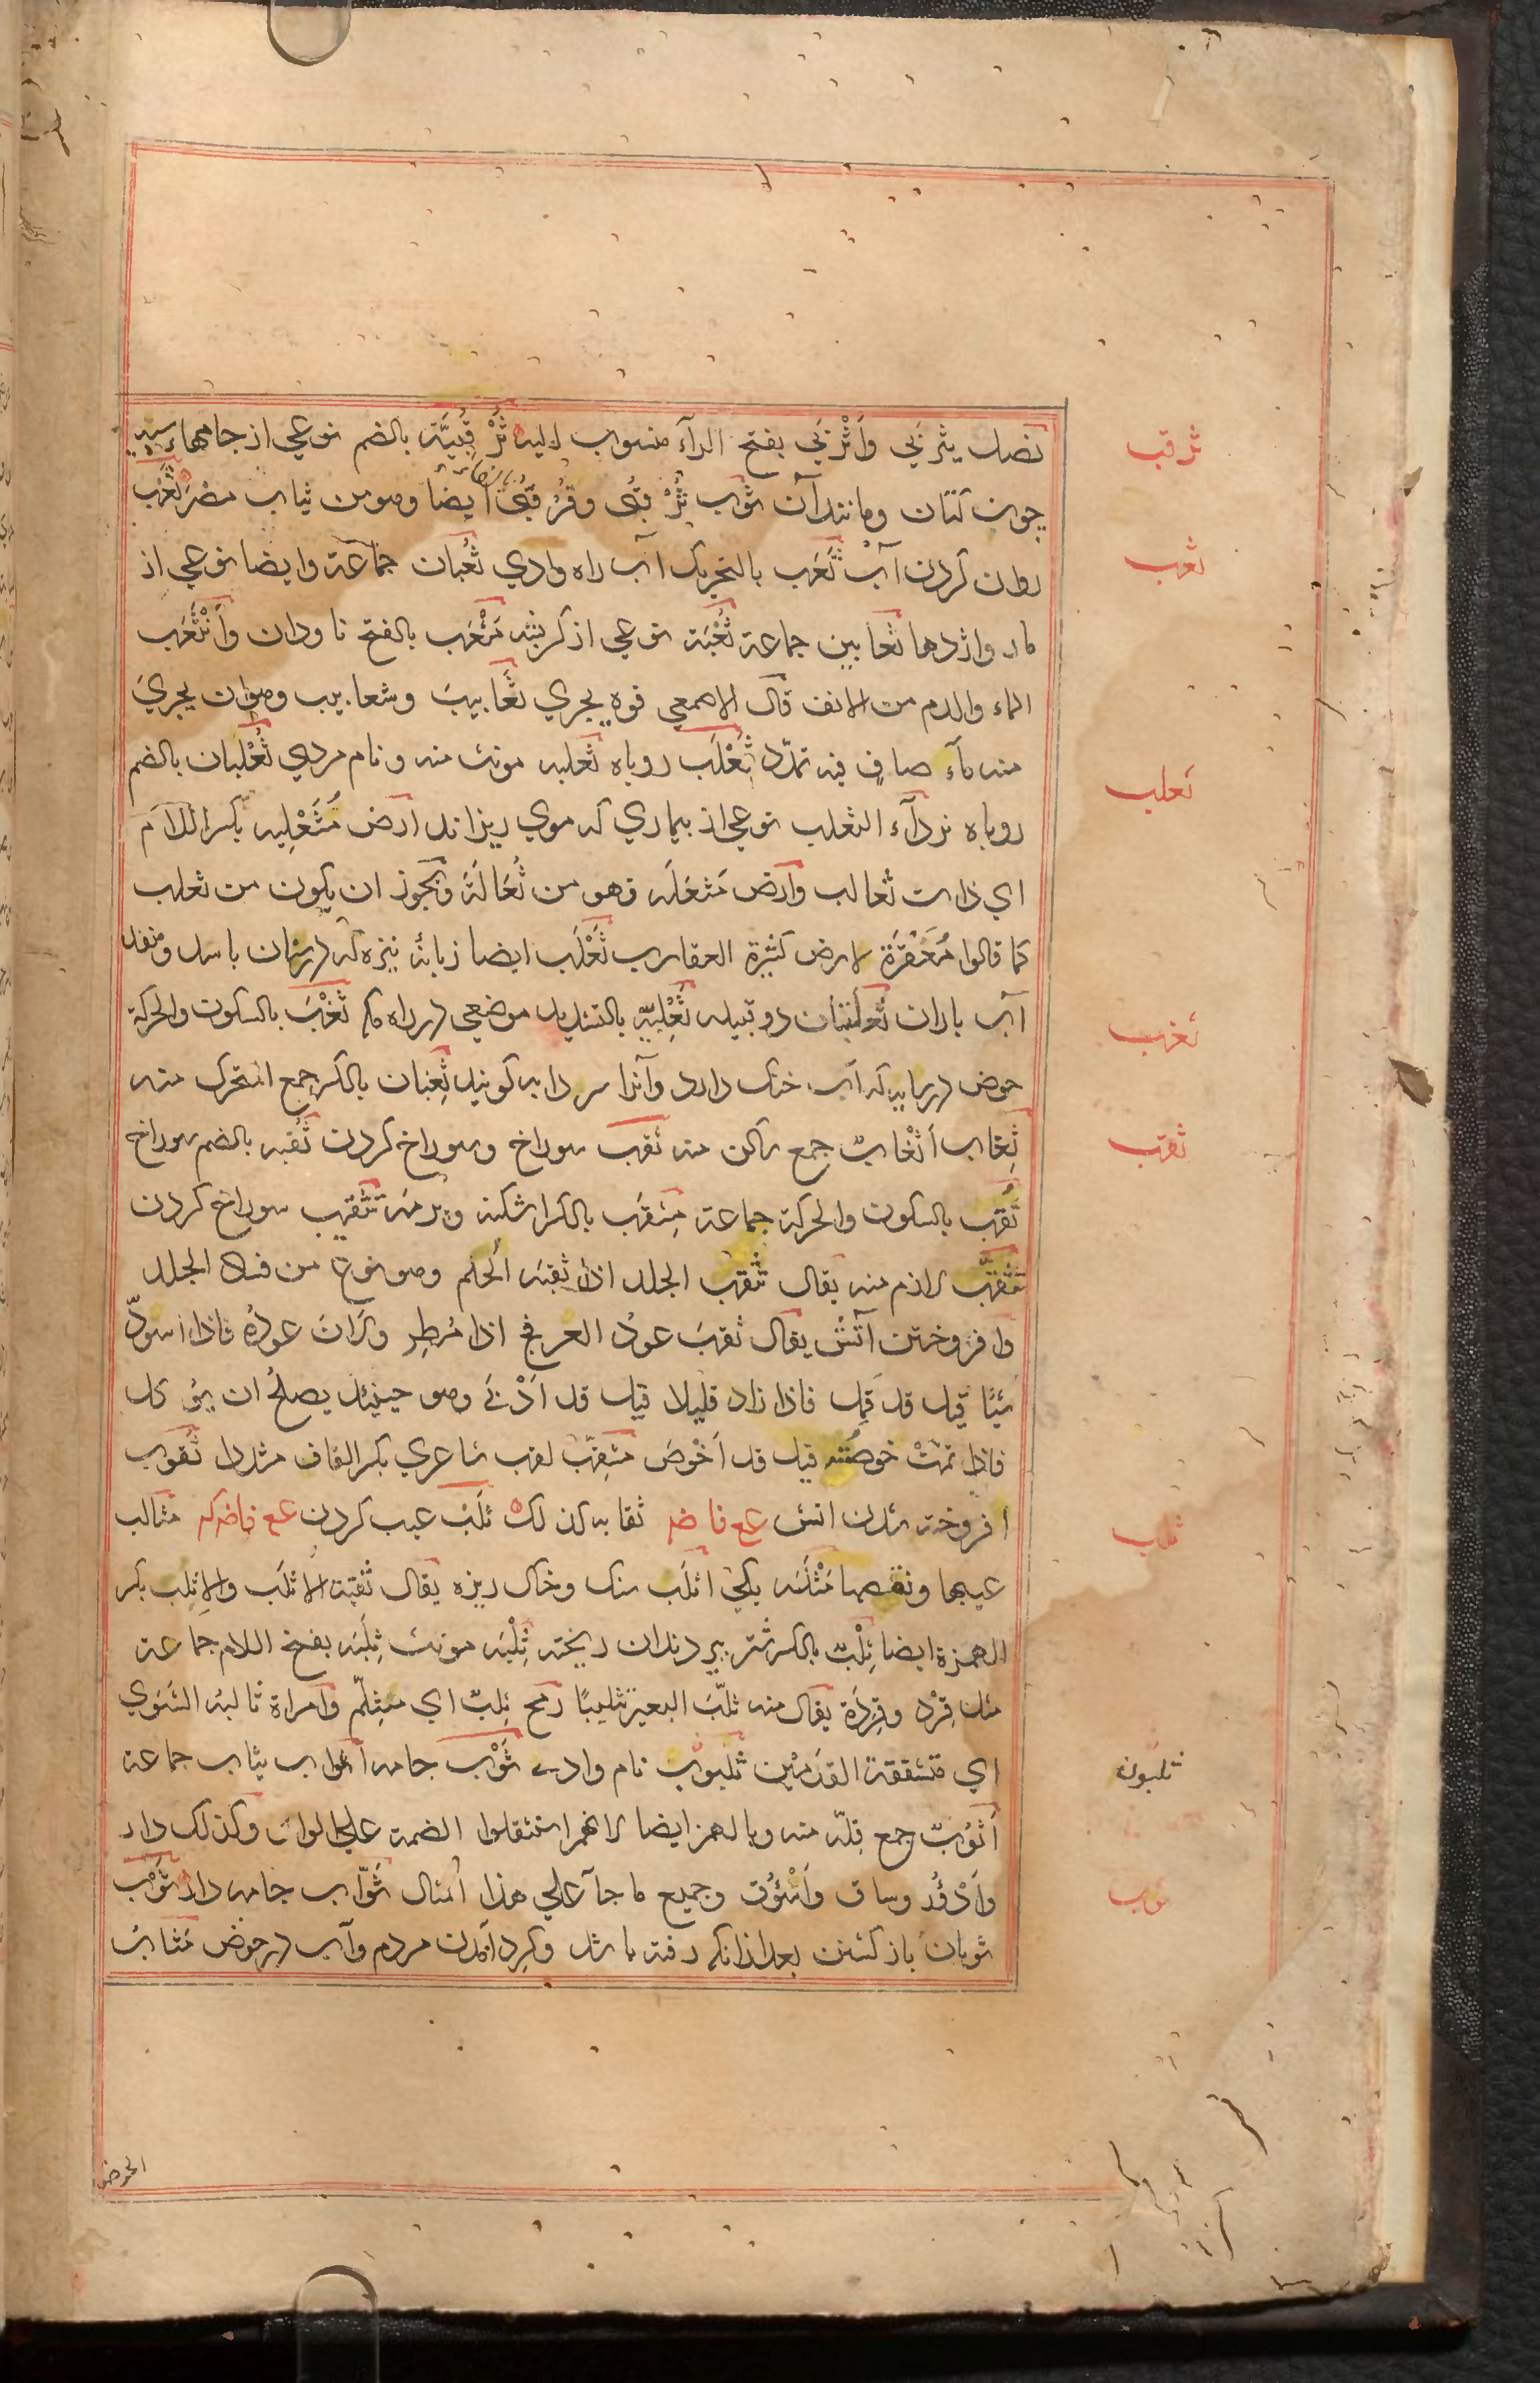 نصل يثرَبي واَثْرَبي بفتح الرآء منسوب اليه ثُرْقُبِيَّة بالضم نوعی از جامهاء سپيد
ثرقب
چون كتان ومانند آن ثوب ثُرْقبی وفُرْقبی ايضا وهو من ثياب مصر ثَعْب
روان كردن آب ثَعَب بالتحريك آب راه وادي ثُعْبان جماعة وايضا نوعی از
ثعب
مار واژدها ثعابين جماعة ثُعْبَة نوعی از كربشه مَثْعَب بالفتح ناودان وانْثَعَب
الماء والدم من الانف قال الاصمعي فوه يجري ثَعابيبَ وسعابيب وهو ان يجريَ
منه مآء صافٍ فيه تمدّد ثَعْلَب روباه ثعلبه مونث منه ونام مردي ثُعْلُبان بالضم
ثعلب
روباه نر دآء الثعلب نوعی از بيماري كه موي ريزاند ارض مُثَعْلِبه بكسر اللآم
اي ذات ثعالب وارض مَثعَلَه فهو من ثُعَالَةَ ويجوز ان يكون من ثعلب
كما قالوا مُعَقْرَة لارض كثيرة العقارب ثَعْلَب ايضا زبانهٔ نيزه كه در سنان باشد ومنفذ
آب باران ثعلبتان دو قبيله ثَعْلِبيّه بالتشديد موضعی در راه مكه ثَغْب بالسكون والحركة
ثغب
حوض در سايه كه آب خنك دارد وآنرا سردابه كويند ثِغبان بالكسر جمع المتحرك منه
ثِغاب أثْغاب جمع ساكن منه ثقب سوراخ وسوراخ كردن ثُقبه بالضم سوراخ
ثقب
ثُقَب بالسكون والحركة جماعة مِثقَب بالكسر اشكنه وبرمه تثقيب سوراخ كردن
تثَقُّب لازم منه يقال تثقب الجلد اذا ثقبَه الحَلَم وهو نوع من فساد الجلد
وافروختن آتش يقال ثقبَ عودُ العرفج اذا مُطِر ولَانَ عودُه فاذا اسودّ
شيئًا قيل قد قَمِل فاذا زاد قليلا قيل قد اَدْبَى وهو حينئذ يصلُحُ ان يؤكل
فاذا تمّتْ خوصَته قيل قد اَخْوصَ مثقِّب لقب شاعري بكسر القاف مشددا ثُقوب
افروخته شدن اتش ع ع فا ض ثقابه كذلك ثَلْب عيب كردن ع ع فا ض ك مثالب
ثلب
عيبها ونقصها مَثْلَبَه يكي اثلَب سنك وخاك ريزه يقال ثقبته الاثلَب والاِثلِب بكسر
الهمزة ايضا ثِلْب بالكسر شتر پير دندان ريخته ثِلْبَه مونث ثِلَبَه بفتح اللام جماعة
مثل قِرْد وقِرَدة يقال منه ثلّبَ البعير تثليبًا رمح ثَلِب اي متثلّم وامراة ثالبة الشَوي
اي متشققة القدَمَيْن ثلبوب نام وادي ثَوْب جامه اثواب ثياب جماعة
ثلبون
أثوُب جمع قلّه منه وبالهمز ايضا لانهم استثقلوا الضمة علي الواو وكذلك دار
واَدْؤُر وساق واَسْؤُق وجميع ما جآ علي هذا المثال ثَوّاب جامه دار ثَوْب
ثوب
ثوبان باز كشتن بعد از انكه رفته باشد وكرد آمدن مردم وآب در حوض مَثابُ
الحوض